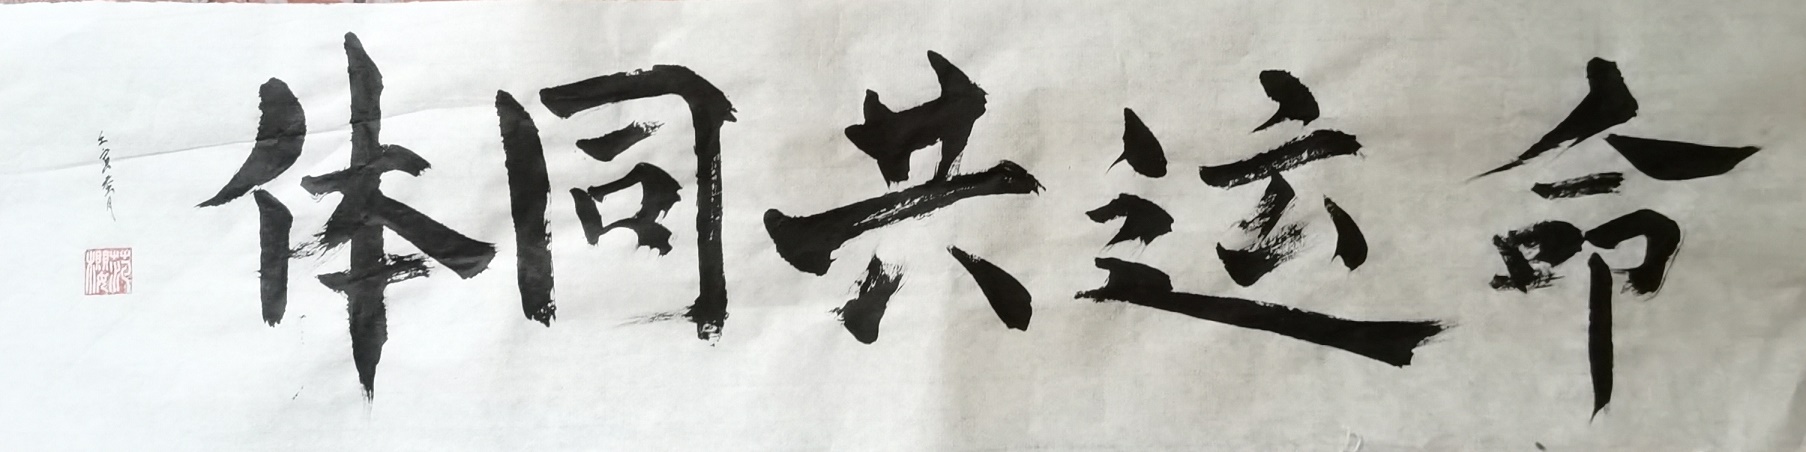 命运共同体
壬寅春月